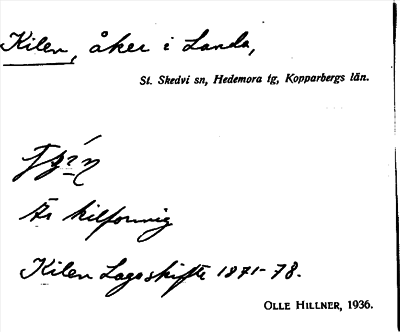 Kilen, åker i Landa,
St. Skedvi sn, Hedemora tg, Kopparbergs län.
Är kilformig
Kilen Lagaskifte 1871-78.
OLLE HILLNER, 1936.